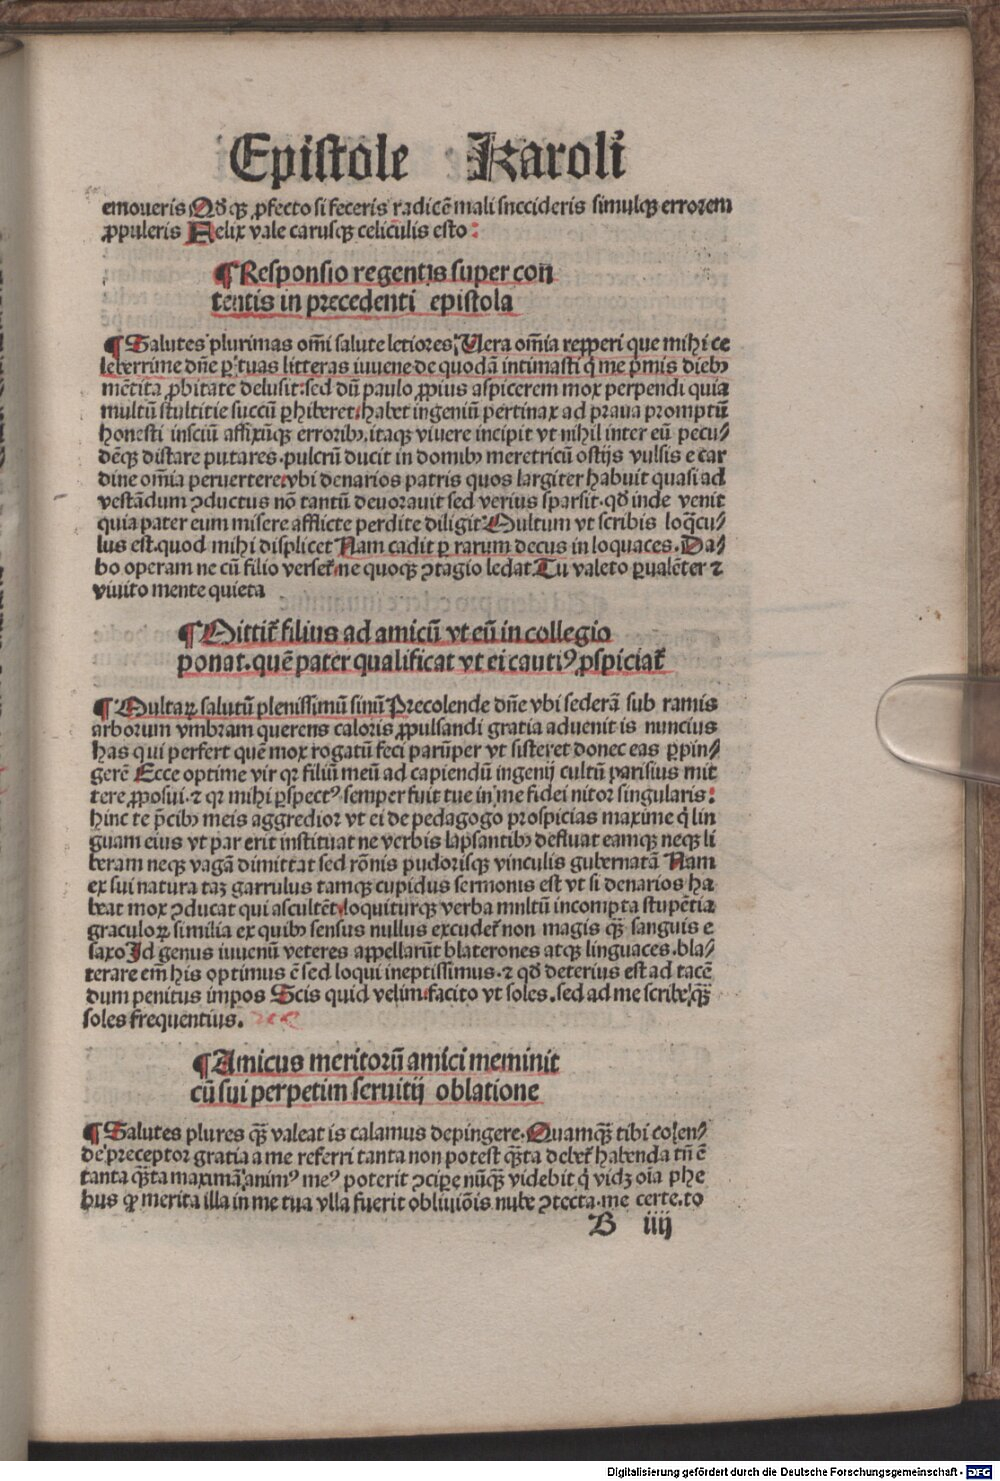 Epistole Karoli
emoueris Qd̄ qꝫ ꝓfecto si feceris radicē mali succideris simulqꝫ errorem
ꝓpuleris Felix vale carusqꝫ celiculis esto:
¶ Responsio regentis super con
tentis in precedenti epistola
¶ Salutes plurimas om̄i salute letiores, Uera om̄ia repperi que mihi ce
leberrime dn̄e ꝑ tuas litteras iuuene de quodā intimasti q̇ me p̄mis diebꝫ
mētita ꝓbitate delusit: sed dū paulo ꝓpius aspicerem mox perpendi quia
multū stultitie succū ꝑhiberet, habet ingeniū pertinax ad praua promptū
honesti insciū affixūqꝫ erroribꝫ, itaqꝫ viuere incipit vt nihil inter eū pecu/
dēqꝫ distare putares. pulcrū ducit in domibꝫ meretricū ostijs vulsis e car
dine om̄ia peruertere: vbi denarios patris quos largiter habuit quasi ad
vestādum ꝯductus nō tantū deuorauit sed verius sparsit. qd̄ inde venit
quia pater eum misere afflicte perdite diligit Multum vt scribis loq̄cu/
lus est. quod mihi displicet Nam cadit ꝑ rarum decus in loquaces. Da/
bo operam ne cū filio verset᷑, ne quoqꝫ ꝯtagio ledat Tu valeto ꝑualēter ⁊
viuito mente quieta
¶ Mittit᷑ filius ad amicū vt eū in collegio
ponat. quē pater qualificat vt ei cautiꝰ ꝓspiciat᷑
¶ Multaꝝ salutū plenissimū sinū Precolende dn̄e vbi sederā sub ramis
arborum vmbram querens caloris ꝓpulsandi gratia aduenit is nuncius
has qui perfert quē mox rogatū feci parūper vt sisteret donec eas ꝑpin/
gerē Ecce optime vir qr filiū meū ad capiendū ingenij cultū parisius mit
tere ꝓposui. ⁊ qr mihi ꝑspectꝰ semper fuit tue in me fidei nitor singularis:
hinc te p̄cibꝫ meis aggredior vt ei de pedagogo prospicias maxime q̇ lin
guam eius vt par erit instituat ne verbis lapsantibꝫ defluat eamqꝫ neqꝫ li
beram neqꝫ vagā dimittat sed rōnis pudorisqꝫ vinculis gubernatā Nam
ex sui natura taꝫ garrulus tamqꝫ cupidus sermonis est vt si denarios ha
beat mox ꝯducat qui ascultēt, loquiturqꝫ verba multū incompta stupētia
graculoꝝ similia ex quibꝫ sensus nullus excudet᷑ non magis qꝫ̄ sanguis e
saxo Id genus iuuenū veteres appellarūt blaterones atqꝫ linguaces. bla/
terare em̄ his optimus ē sed loqui ineptissimus. ⁊ qd̄ deterius est ad tacē
dum penitus impos Scis quid velim, facito vt soles. sed ad me scribe, qꝫ̄
soles frequentius.
¶ Amicus meritorū amici meminit
cū sui perpetim seruitij oblatione
¶ Salutes plures qꝫ̄ valeat is calamus depingere. Quamqꝫ̄ tibi colen/
de preceptor gratia a me referri tanta non potest qꝫ̄ta debet᷑ habenda tn̄ ē
tanta qꝫ̄ta maximā animꝰ meꝰ poterit ꝯcipe nūqꝫ̄ videbit q̇ vidꝫ oīa phe
bus qꝙ merita illa in me tua vlla fuerit obliuiōis nube ꝯtecta. me certe. to
B iiij
Digitalisierung gefördert durch die Deutsche Forschungsgemeinschaft - DFG